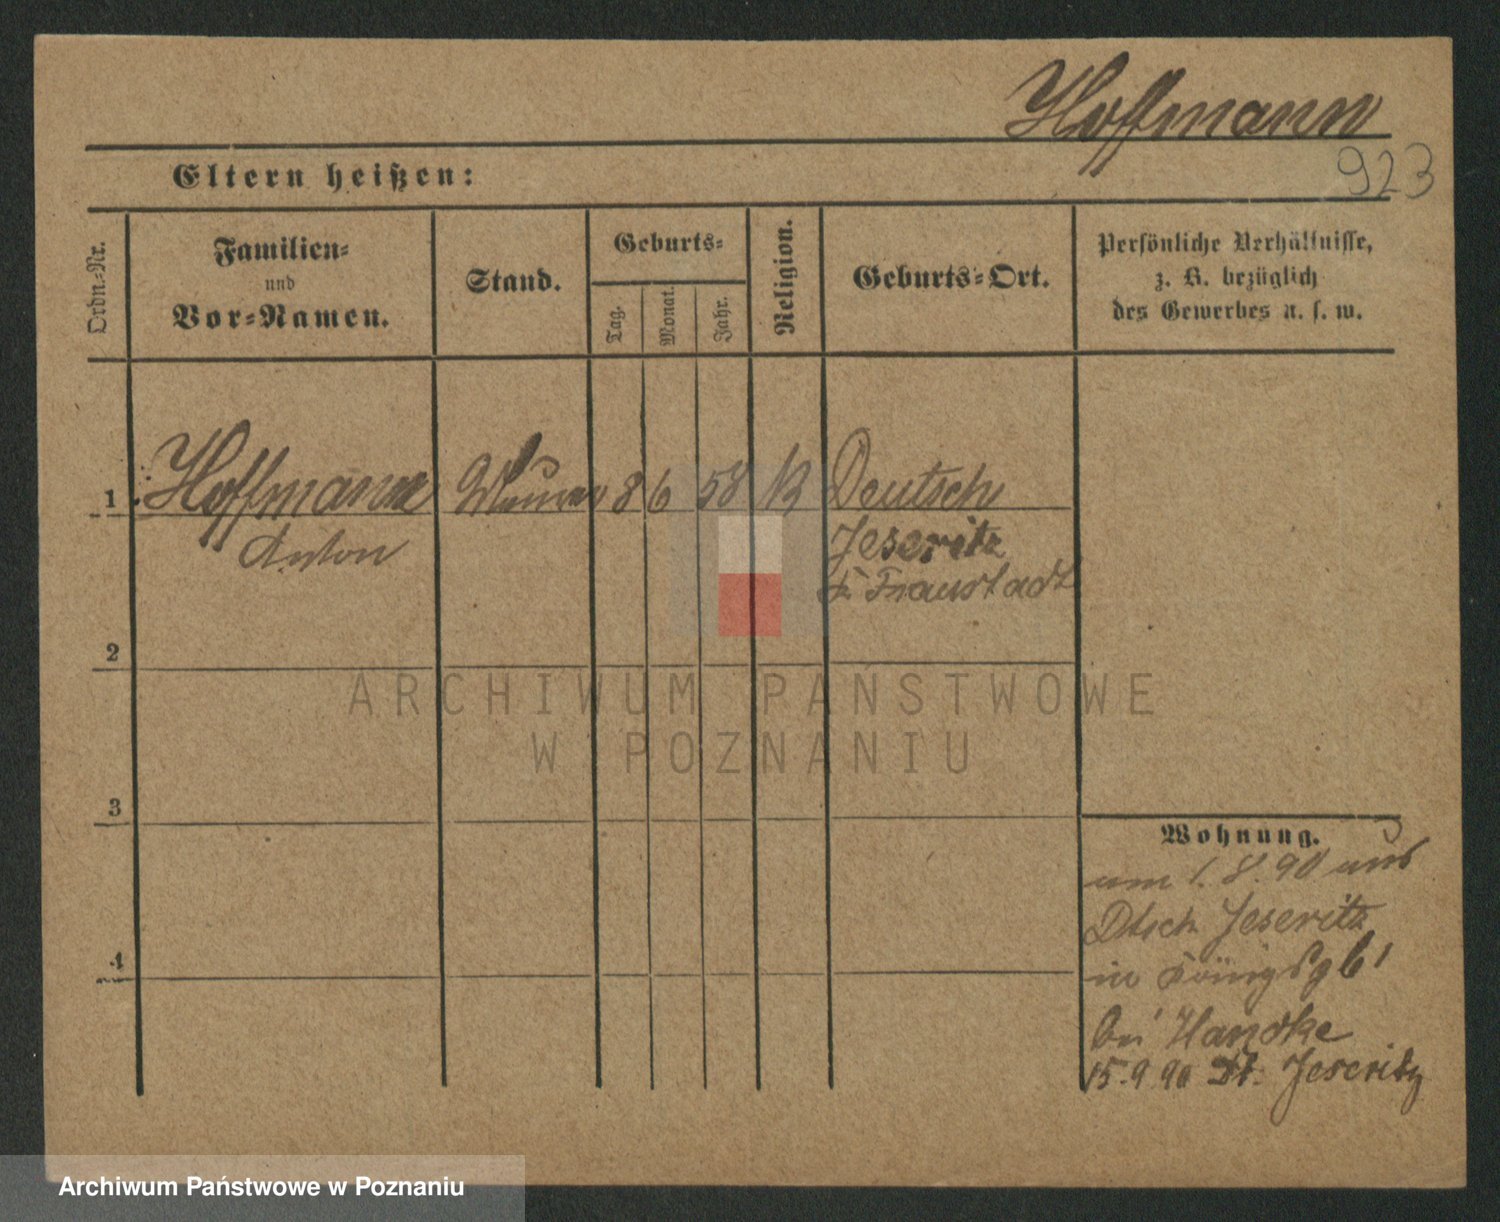 Hoffmann
923
Eltern heißen:
Ordn.-Nr.
Familien-
und
Vor-Namen.
Stand.
Geburts-
Tag.
Monat.
Jahr.
Religion.
Geburts-Ort.
Persönliche Verhältnisse,
z. B. bezüglich
des Gewerbes u. s. w.
1 Hoffmann Maurer 8 6 58 K Deutsch
Anton Jeseritz
K Fraustadt
2
3
4
Wohnung.
am 1. 8. 90 aus
Dtsch Jeseritz
in
bei Handke
15. 9 90 Dt. Jeseritz
ARCHIWUM PAŃSTWOWE
W POZNANIU
Archiwum Państwowe w Poznaniu